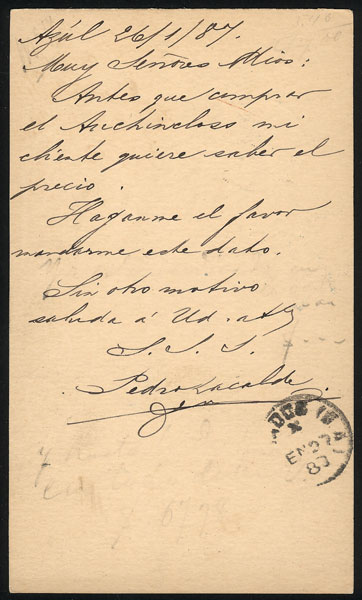 Azúl 26/1/87.
Muy Señores Mios:
Antes que comprar
el Auchincloss mi
cliente quiere saber el
precio.
Haganme el favor
mandarme este dato.
Sin otro motivo
saluda á Ud. atty
S. S. S.
Pedro Lacalde
EN 27
87